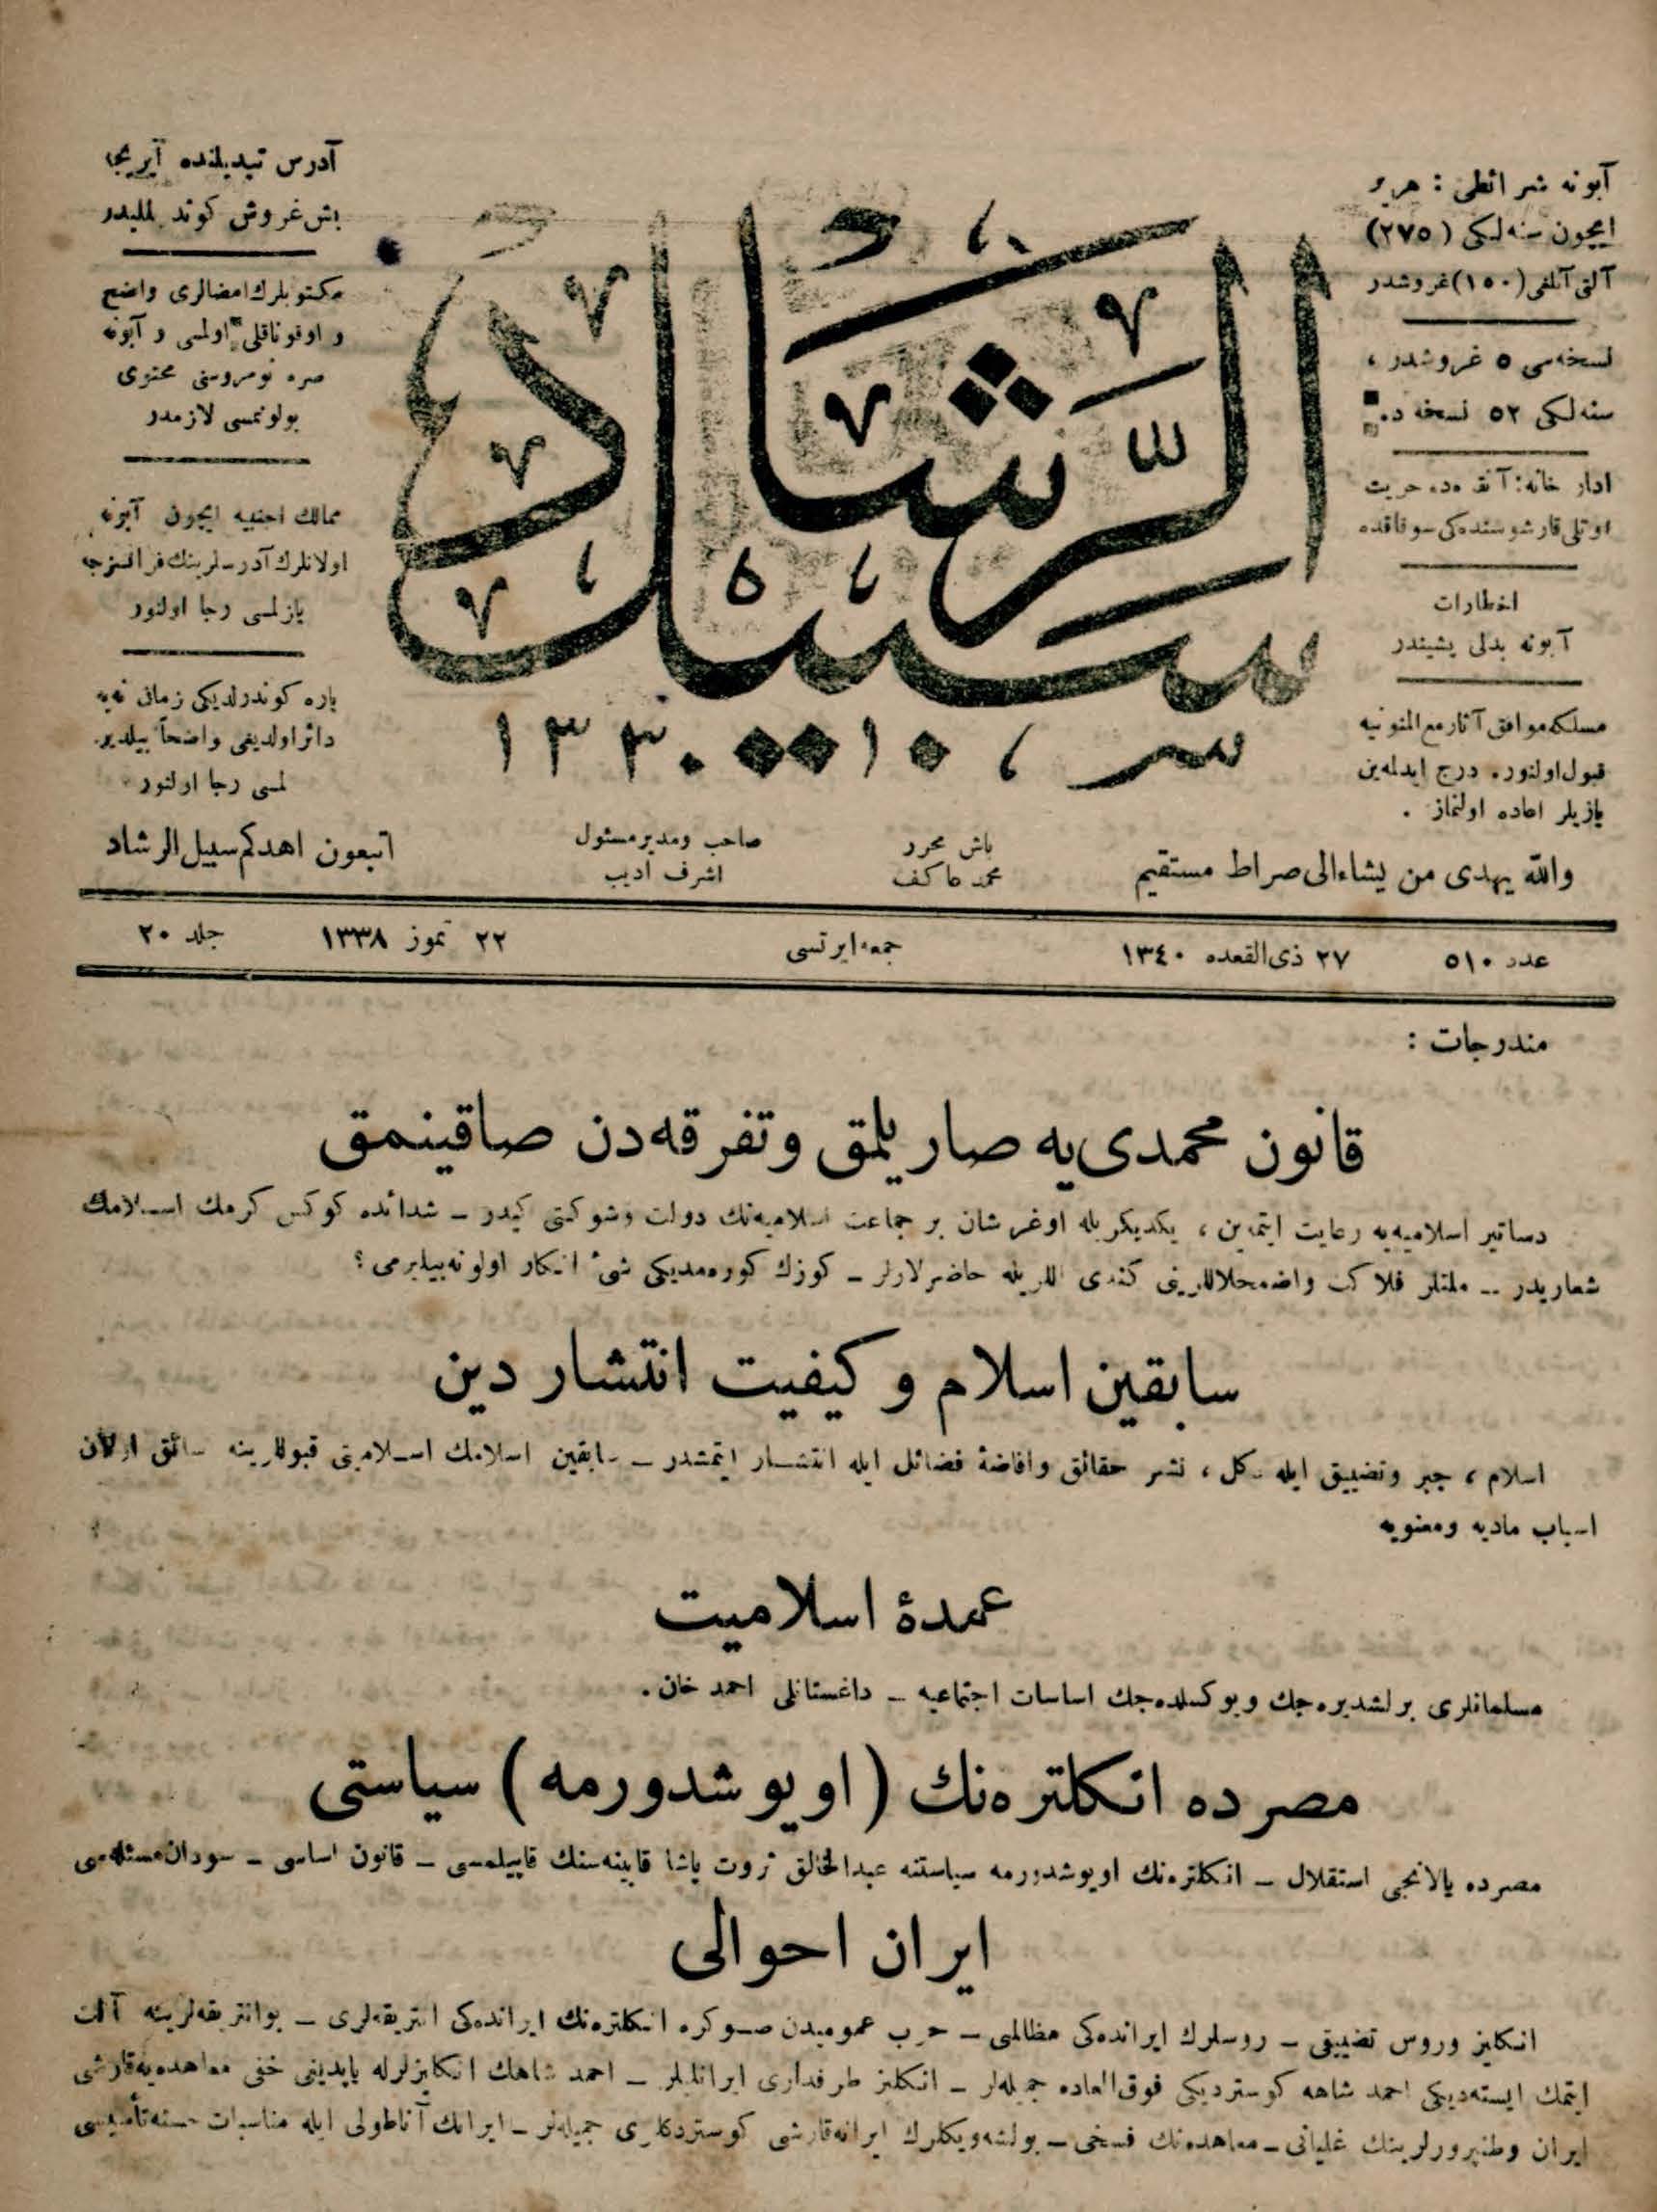 آبونه شرائطی : هر یر
ایچون سنه‌لکی (۲۷۵)
آلتی آیلغی (۱۵۰) غروشدر
نسخه‌سی ۵ غروشدر ،
سنه‌لکی ۵۲ نسخه در
اداره‌خانه : آنقره‌ده حریت
اوتلی قارشوسنده‌کی سوقاقده
اخطارات
آبونه بدلی پشیندر
مسلکه موافق آثار مع الممنونیه
قبول اولنور. درج ایدلمه‌ین
یازیلر اعاده اولنماز .
سبیل الرشاد
۱۳۳۰
آدرس تبدیلنده آیریجا
بش غروش کوندرلملیدر
مکتوبلرك امضالری واضح
و اوقوناقلی اولمسی و آبونه
صره نومروسنی محتوی
بولونمسی لازمدر
ممالك اجنبیه ایچون آبونه
اولانلرك آدرسلرینك فرانسزجه
یازلمسی رجا اولنور
پاره کوندرلدیکی زمان نه‌یه
دائر اولدیغی واضحاً بیلدیر-
لمسی رجا اولنور
والله یهدی من یشاء الی صراط مستقیم
باش محرر
محمد عاکف
صاحب ومدیر مسئول
اشرف ادیب
اتبعون اهدکم سبیل الرشاد
عدد ۵۱۰ ۲۷ ذی القعده ۱۳٤۰ جمعه‌ایرتسی ۲۲ تموز ۱۳۳۸ جلد ۲۰
مندرجات :
قانون محمدی‌یه صاریلمق وتفرقه‌دن صاقینمق
دساتیر اسلامیه‌یه رعایت ایتمه‌ین ، یکدیکریله اوغرشان بر جماعت اسلامیه‌نك دولت وشوکتی کیدر – شدائده کوکس کرمك اسلامك
شعاریدر – ملتلر فلاکت واضمحلاللرینی کندی اللریله حاضرلارلر – کوزك کوره‌مدیکی شیء انکار اولونه‌بیلیرمی ؟
سابقین اسلام و کیفیت انتشار دین
اسلام ، جبر وتضییق ایله دکل ، نشر حقائق وافاضهٔ فضائل ایله انتشار ایتمشدر – سابقین اسلامك اسلامیتی قبوللرینه سائق اولان
اسباب مادیه ومعنویه
عمدهٔ اسلامیت
مسلمانلری برلشدیره‌جك ویوکسلده‌جك اساسات اجتماعیه – داغستانلی احمد خان .
مصرده انکلتره‌نك (اویوشدورمه) سیاستی
مصرده یالانجی استقلال – انکلتره‌نك اویوشدورمه سیاستنه عبدالخالق ثروت پاشا قابینه‌سنك قاپیلمسی – قانون اساسی – سودان مسئله‌سی
ایران احوالی
انکلیز وروس تضییقی – روسلرك ایرانده‌کی مظالمی – حرب عمومیدن صوکره انکلتره‌نك ایرانده‌کی انتریقه‌لری – بوانتریقه‌لرینه آلت
ایتمك ایسته‌دیکی احمد شاهه کوستردیکی فوق العاده جمیله‌لر – انکلیز طرفداری ایرانلیلر – احمد شاهك انکلیزلرله یاپدیغی خفی معاهده‌یه قارشی
ایران وطنپرورلرینك غلیانی – معاهده‌نك فسخی – بولشه‌ویکلرك ایرانه قارشی کوستردکلری جمیله‌لر – ایرانك آناطولی ایله مناسبات حسنه تأسیسی